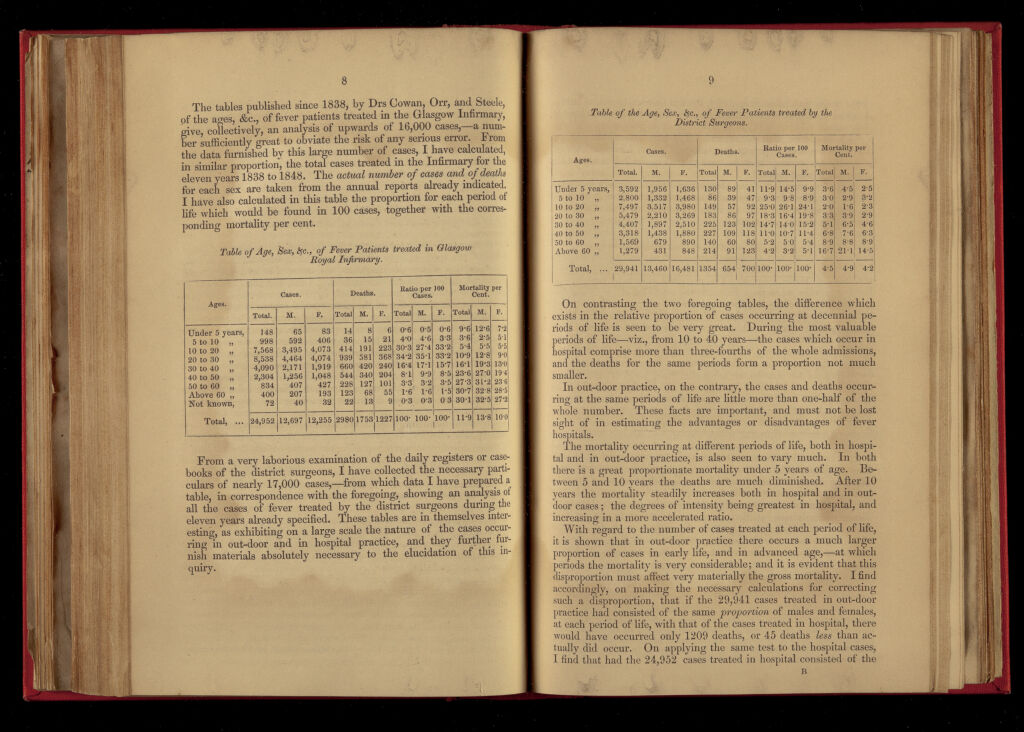 8
The tables published since 1838, by Drs Cowan, Orr, and Steele,
of the ages, &c., of fever patients treated in the Glasgow Infirmary,
give, collectively, an analysis of upwards of 16,000 cases,—a num-
ber sufficiently great to obviate the risk of any serious error. From
the data furnished by this large number of cases, I have calculated,
in similar proportion, the total cases treated in the Infirmary for the
eleven years 1838 to 1848. The actual number of cases and of deaths
for each sex are taken from the annual reports already indicated.
I have also calculated in this table the proportion for each period of
life which would be found in 100 cases, together with the corres-
ponding mortality per cent.
Table of Age, Sex, &c., of Fever Patients treated in Glasgow
Royal Infirmary.
Ages. Cases. Deaths. Ratio per 100 Cases. Mortality per Cent.
Total. M. F. Total M. F. Total M. F. Total M. F.
Under 5 years, 148 65 83 14 8 6 0·6 0·5 0·6 9·6 12·6 7·2
5 to 10 „ 998 592 406 36 15 21 4·0 4·6 3·3 3·6 2·5 5·1
10 to 20 „ 7,568 3,495 4,073 414 191 223 30·3 27·4 33·2 5·4 5·5 5·5
20 to 30 „ 8,538 4,464 4,074 939 581 368 34·2 35·1 33·2 10·9 12·8 9·0
30 to 40 „ 4,090 2,171 1,919 660 420 240 16·4 17·1 15·7 16·1 19·3 13·0
40 to 50 „ 2,304 1,256 1,048 544 340 204 8·1 9·9 8·5 23·6 27·0 19·4
50 to 60 „ 834 407 427 228 127 101 3·3 3·2 3·5 27·3 31·2 23·6
Above 60 „ 400 207 193 123 68 55 1·6 1·6 1·5 30·7 32·8 28·5
Not known, 72 40 32 22 13 9 0·3 0·3 0·3 30·1 32·5 27·2
Total, ... 24,952 12,697 12,255 2980 1753 1227 100· 100· 100· 11·9 13·8 10·0
From a very laborious examination of the daily registers or case-
books of the district surgeons, I have collected the necessary parti-
culars of nearly 17,000 cases,—from which data I have prepared a
table, in correspondence with the foregoing, showing an analysis of
all the cases of fever treated by the district surgeons during the
eleven years already specified. These tables are in themselves inter-
esting, as exhibiting on a large scale the nature of the cases occur-
ring in out-door and in hospital practice, and they further fur-
nish materials absolutely necessary to the elucidation of this in-
quiry.
9
Table of the Age, Sex, &c., of Fever Patients treated by the
District Surgeons.
Ages. Cases. Deaths. Ratio per 100 Cases. Mortality per Cent.
Total. M. F. Total M. F. Total M. F. Total M. F.
Under 5 years, 3,592 1,956 1,636 130 89 41 11·9 14·5 9·9 3·6 4·5 2·5
5 to 10 „ 2,800 1,332 1,468 86 39 47 9·3 9·8 8·9 3·0 2·9 3·2
10 to 20 „ 7,497 3,517 3,980 149 57 92 25·0 26·1 24·1 2·0 1·6 2·3
20 to 30 „ 5,479 2,210 3,269 183 86 97 18·3 16·4 19·8 3·3 3·9 2·9
30 to 40 „ 4,407 1,897 2,510 225 123 102 14·7 14·0 15·2 5·1 6·5 4·6
40 to 50 „ 3,318 1,438 1,880 227 109 118 11·0 10·7 11·4 6·8 7·6 6·3
50 to 60 „ 1,569 679 890 140 60 80 5·2 5·0 5·4 8·9 8·8 8·9
Above 60 „ 1,279 431 848 214 91 123 4·2 3·2 5·1 16·7 21·1 14·5
Total, ... 29,941 13,460 16,481 1354 654 700 100· 100· 100· 4·5 4·9 4·2
On contrasting the two foregoing tables, the difference which
exists in the relative proportion of cases occurring at decennial pe-
riods of life is seen to be very great. During the most valuable
periods of life—viz., from 10 to 40 years—the cases which occur in
hospital comprise more than three-fourths of the whole admissions,
and the deaths for the same periods form a proportion not much
smaller.
In out-door practice, on the contrary, the cases and deaths occur-
ring at the same periods of life are little more than one-half of the
whole number. These facts are important, and must not be lost
sight of in estimating the advantages or disadvantages of fever
hospitals.
The mortality occurring at different periods of life, both in hospi-
tal and in out-door practice, is also seen to vary much. In both
there is a great proportionate mortality under 5 years of age. Be-
tween 5 and 10 years the deaths are much diminished. After 10
years the mortality steadily increases both in hospital and in out-
door cases; the degrees of intensity being greatest in hospital, and
increasing in a more accelerated ratio.
With regard to the number of cases treated at each period of life,
it is shown that in out-door practice there occurs a much larger
proportion of cases in early life, and in advanced age,—at which
periods the mortality is very considerable; and it is evident that this
disproportion must affect very materially the gross mortality. I find
accordingly, on making the necessary calculations for correcting
such a disproportion, that if the 29,941 cases treated in out-door
practice had consisted of the same proportion of males and females,
at each period of life, with that of the cases treated in hospital, there
would have occurred only 1209 deaths, or 45 deaths less than ac-
tually did occur. On applying the same test to the hospital cases,
I find that had the 24,952 cases treated in hospital consisted of the
B